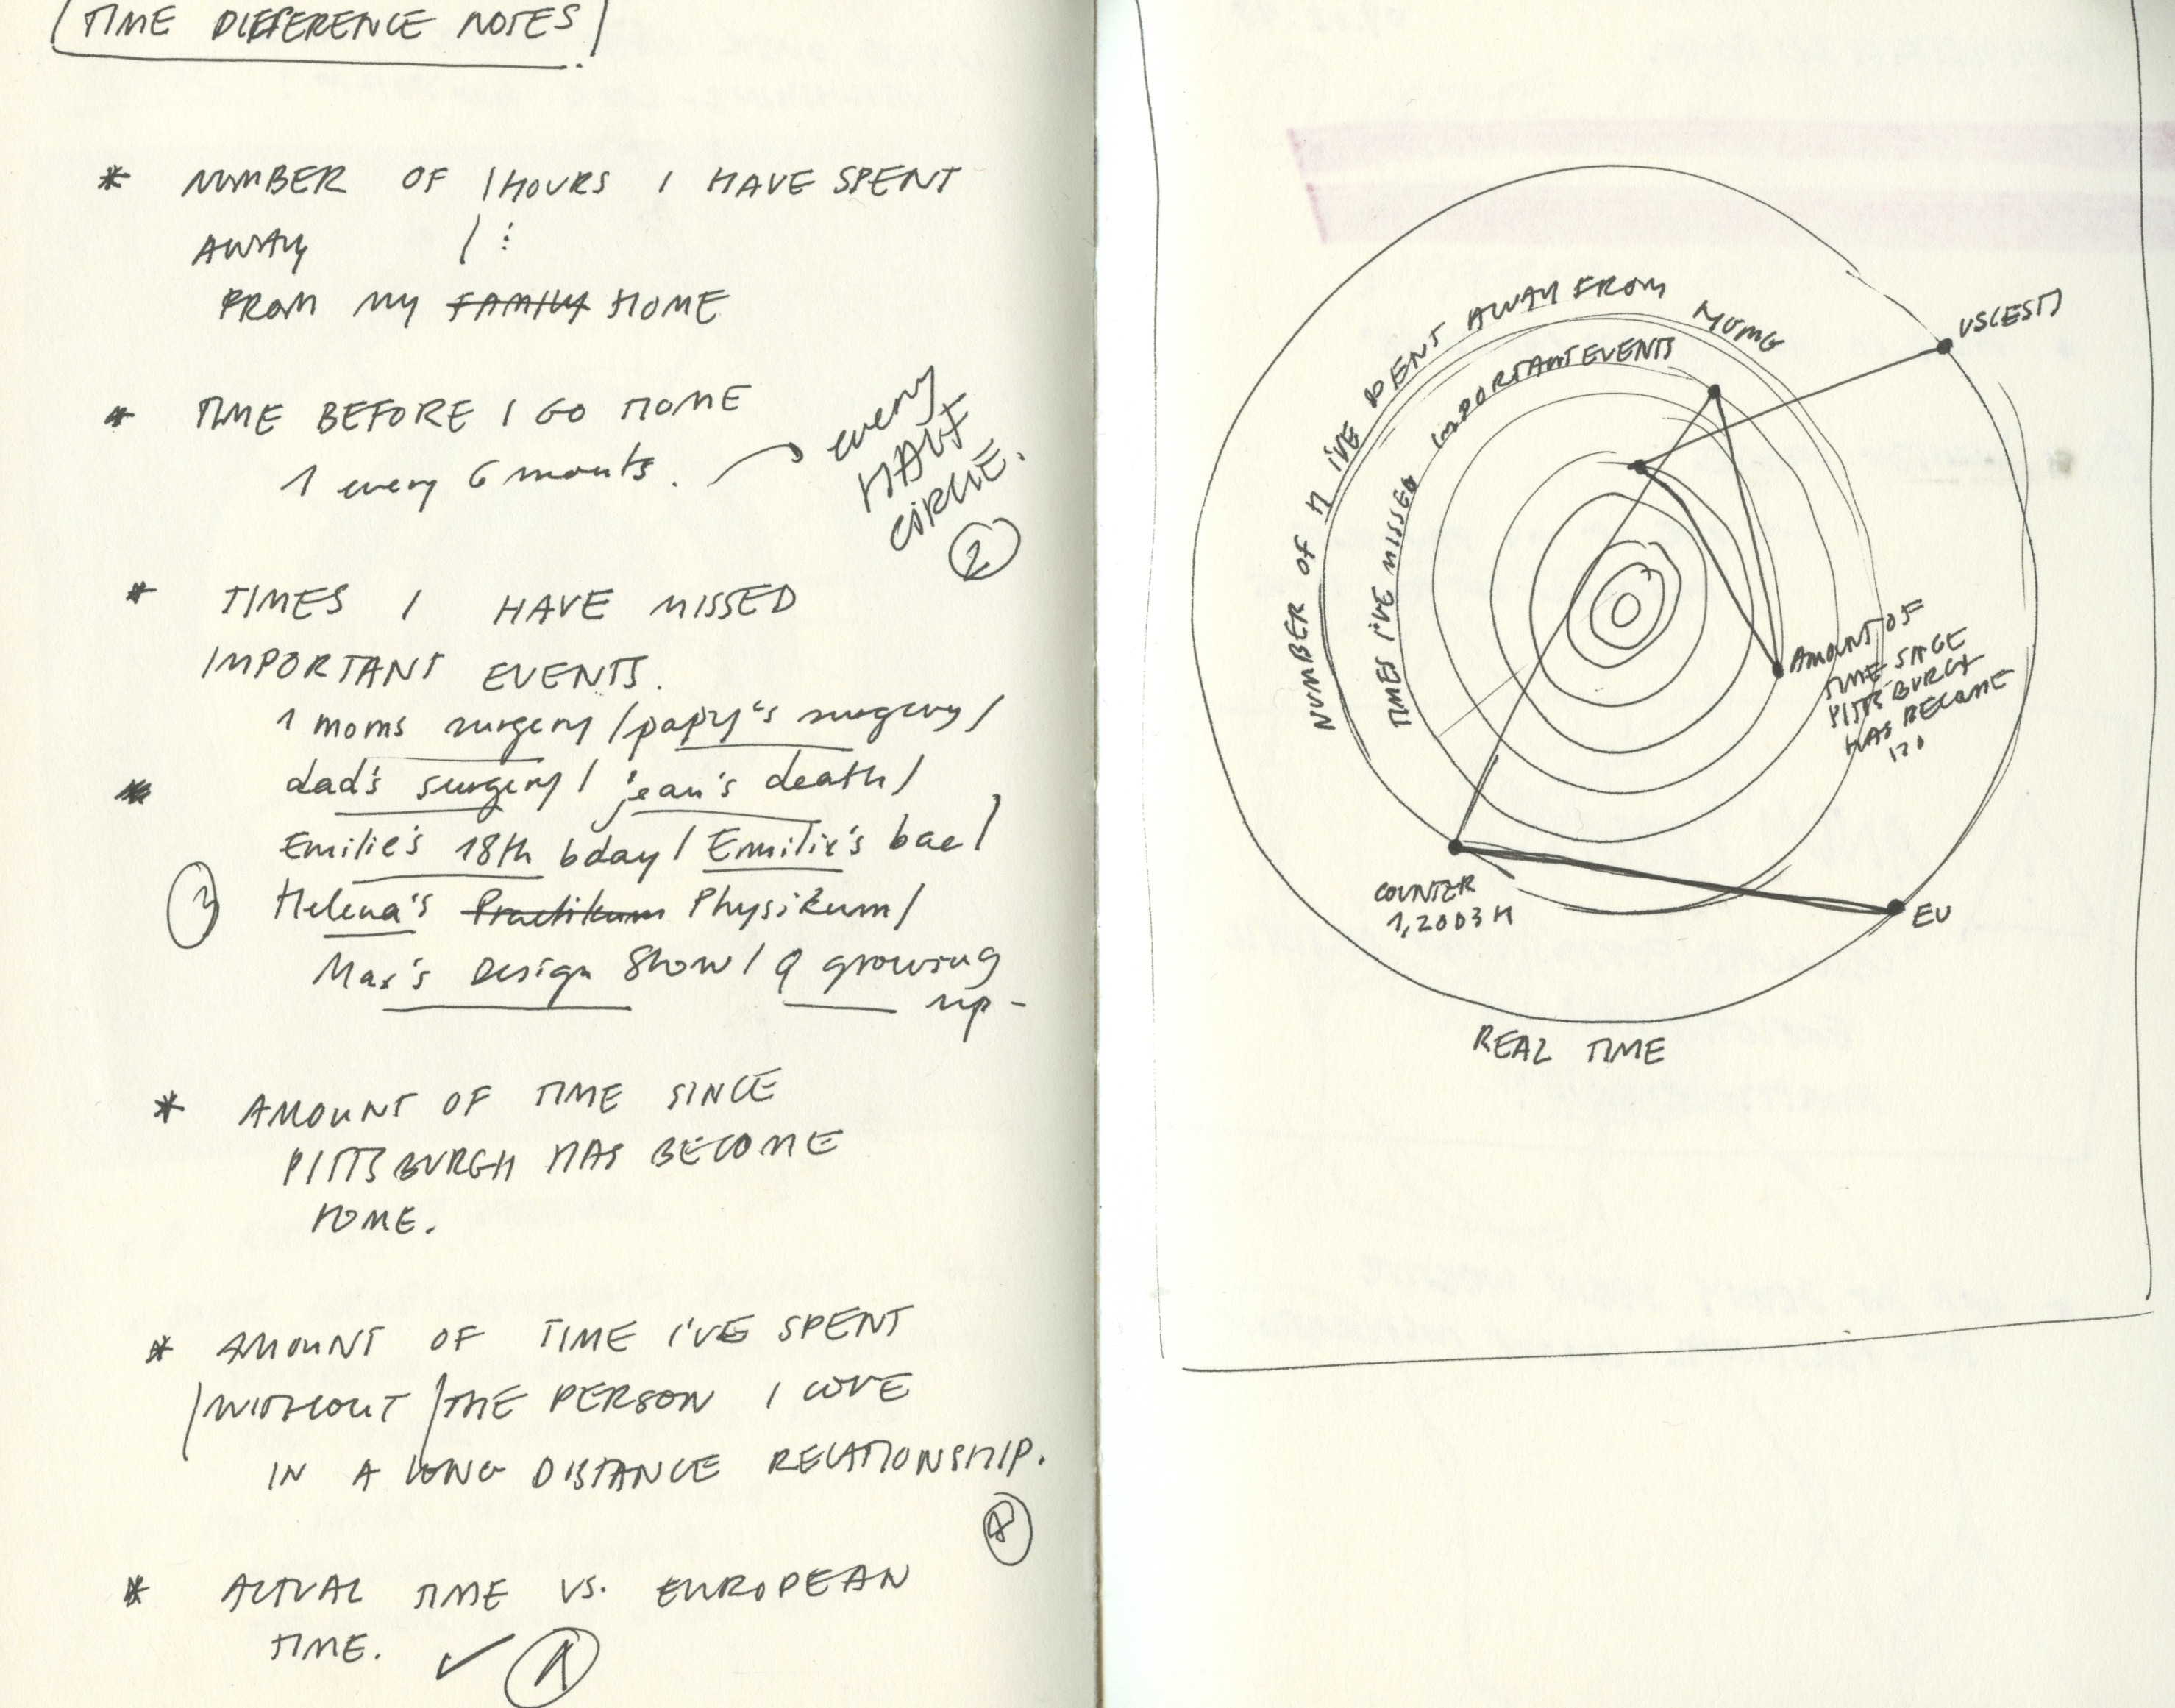 TIME DIFFERENCE NOTES
* NUMBER OF /HOURS I HAVE SPENT
AWAY / ⋮
FROM MY FAMILY HOME
* TIME BEFORE I GO HOME
1 every 6 monts.
every
HALF
CIRCLE.
2
* TIMES I HAVE MISSED
IMPORTANT EVENTS.
1 moms surgery / papy's surgery /
* dad's surgery / jean's death /
Emilie's 18th bday / Emilie's bac /
3
Helena's Practikum Physikum /
Max's Design Show / Q growing
up -
* AMOUNT OF TIME SINCE
PITTSBURGH HAS BECOME
HOME.
* AMOUNT OF TIME I'VE SPENT
/WITHOUT/ THE PERSON I LOVE
IN A LONG DISTANCE RELATIONSHIP.
* ACTUAL TIME VS. EUROPEAN
TIME. ✓ 1
NUMBER OF H I'VE SPENT AWAY FROM
HOME
TIMES I'VE MISSED IMPORTANT EVENTS
US(EST)
AMOUNT OF
TIME SINCE
PITTSBURGH
HAS BECOME
COUNTER
1,2003 H
EU
REAL TIME